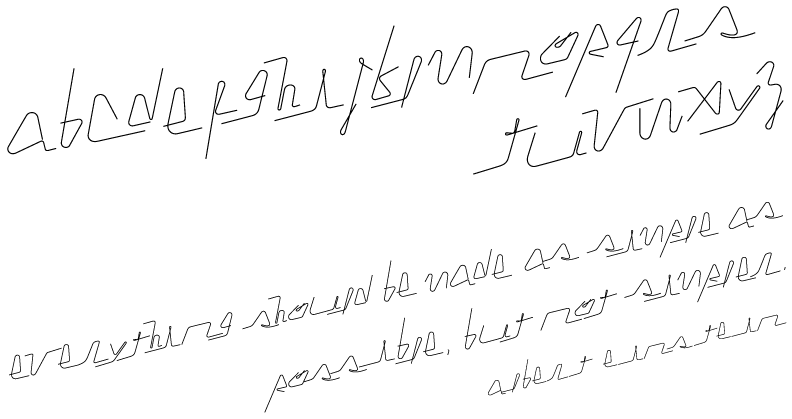 abcdefghijklmnopqrs
tuvwxyz
everything should be made as simple as
possible, but not simpler.
albert einstein